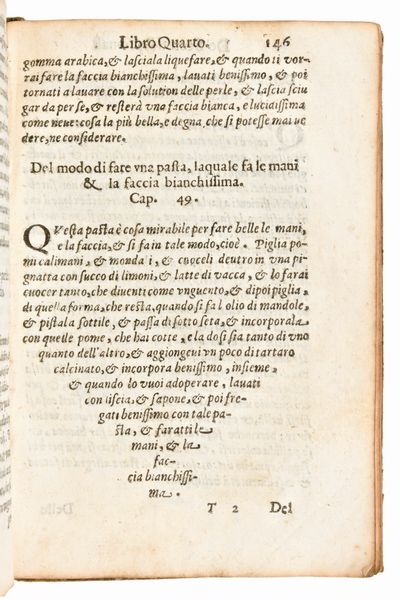 Libro Quarto. 146
gomma arabica, & lasciala liquefare, & quando ti vor-
rai fare la faccia bianchissima, lauati benissimo, & poi
tornati a lauare con la solution delle perle, & lascia sciu
gar da per se, & resterà vna faccia bianca, e lucidissima
come neue: cosa la più bella, e degna, che si potesse mai ve
dere, ne considerare.
Del modo di fare vna pasta, laquale fa le mani
& la faccia bianchissima.
Cap. 49.
QVesta pasta è cosa mirabile per fare belle le mani,
e la faccia, & si fa in tale modo, cioè. Piglia po-
mi calimani, & monda i, & cuoceli dentro in vna pi-
gnatta con succo di limoni, & latte di vacca, & lo farai
cuocer tanto, che diuenti come vnguento, & dipoi piglia,
di quella forma, che resta, quando si fa l olio di mandole,
& pistala sottile, & passa di sotto seta, & incorporala
con quelle pome, che hai cotte, e la dosi sia tanto di vno
quanto dell'altro, & aggiongeui vn poco di tartaro
calcinato, & incorpora benissimo, insieme,
& quando lo vuoi adoperare, lauati
con liscia, & sapone, & poi fre-
gati benissimo con tale pa-
sta, & faratti le
mani, & la
fac-
cia bianchissi-
ma.
T 2 Del